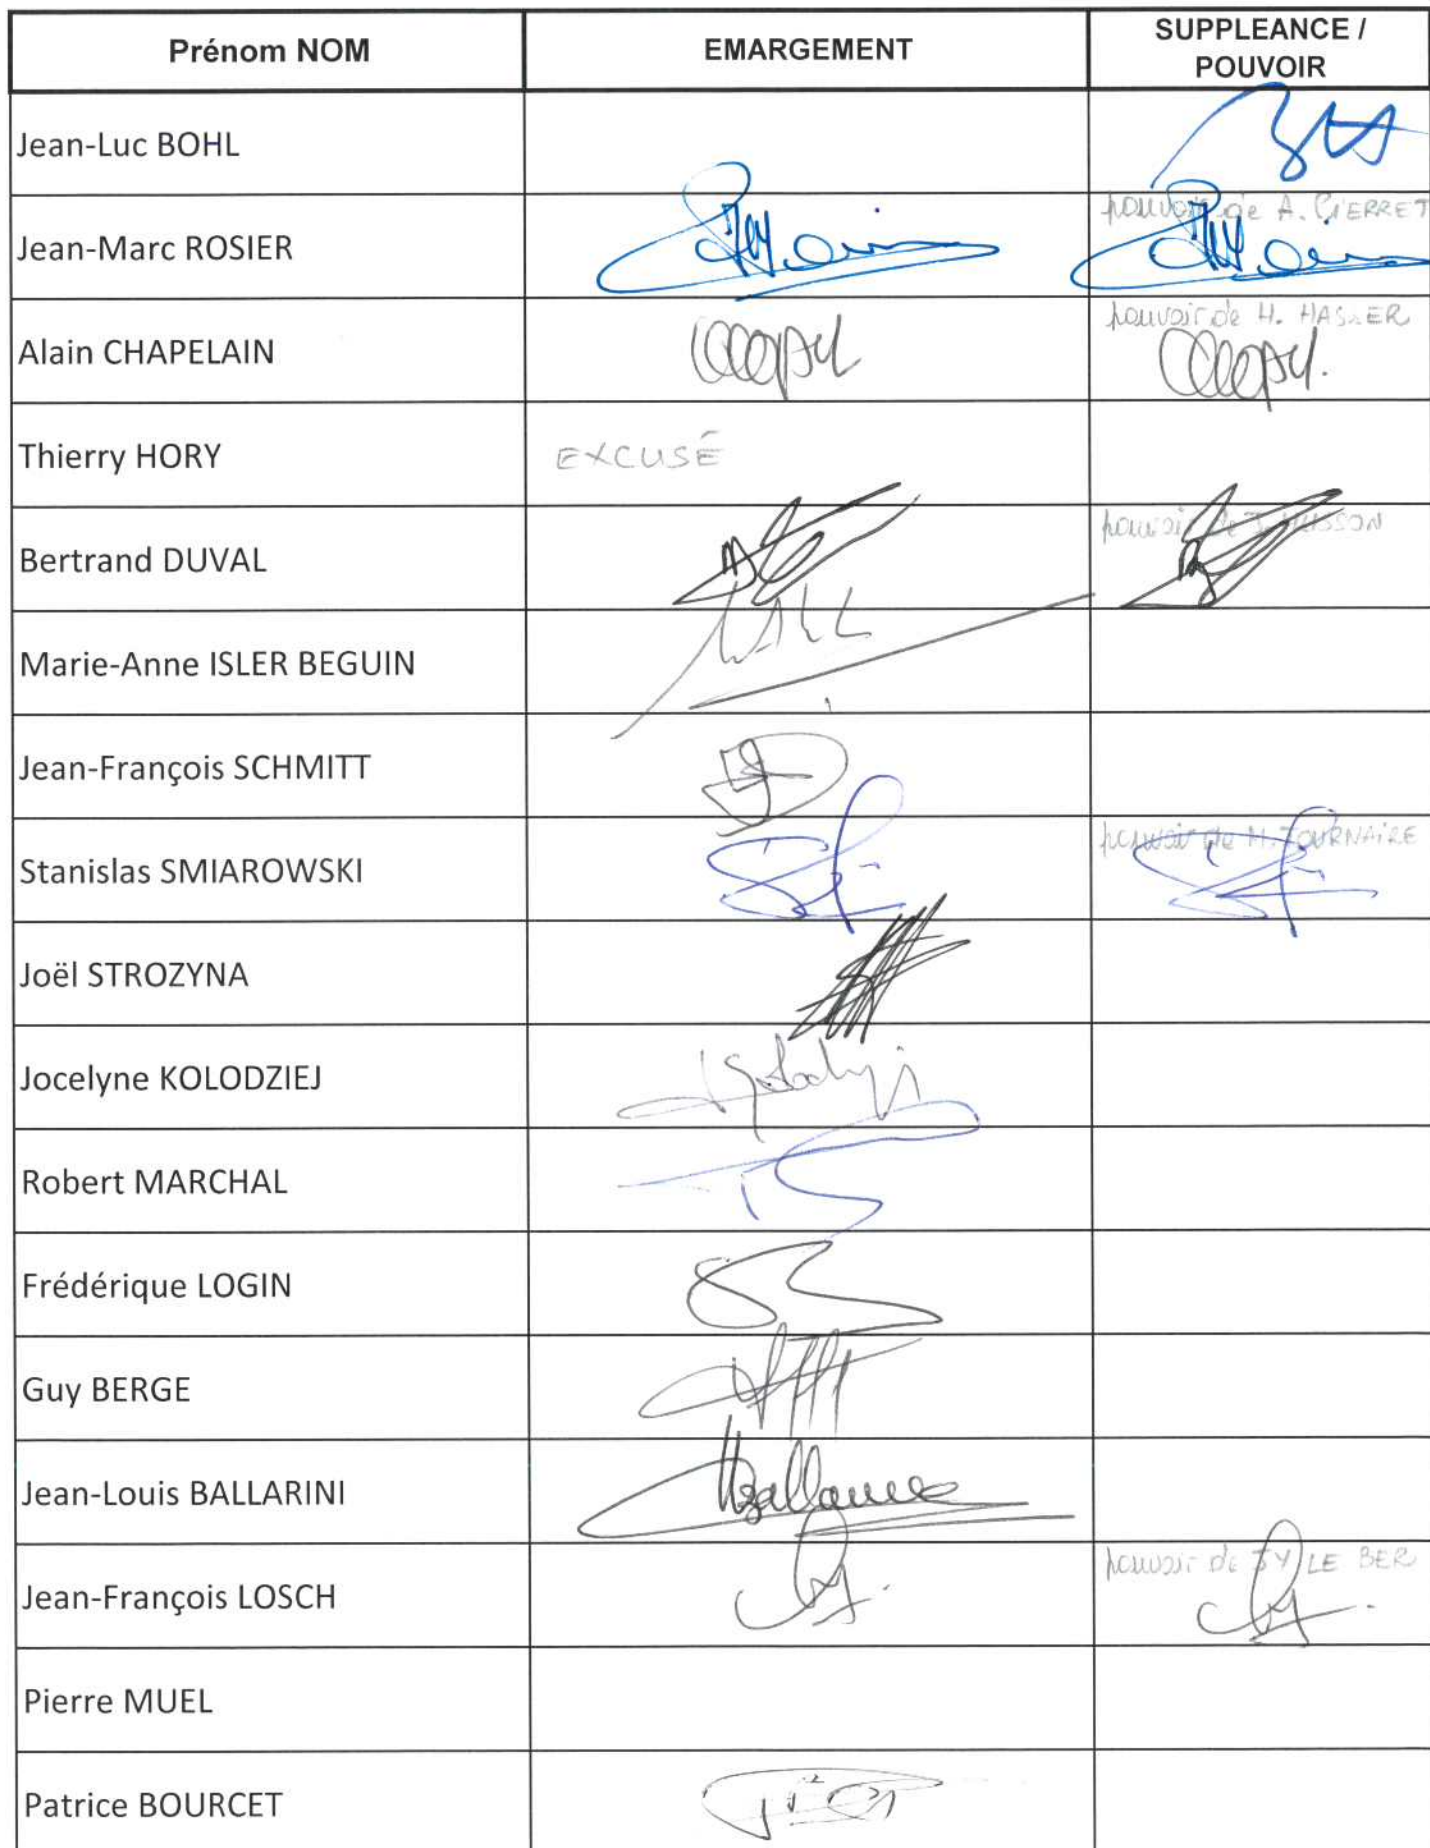 Prénom NOM
EMARGEMENT
SUPPLEANCE /
POUVOIR
Jean-Luc BOHL
Jean-Marc ROSIER
pouvoir de A. PIERRET
Alain CHAPELAIN
pouvoir de H. HASSER
Thierry HORY
EXCUSÉ
Bertrand DUVAL
pouvoir de HUSSON
Marie-Anne ISLER BEGUIN
Jean-François SCHMITT
Stanislas SMIAROWSKI
pouvoir de
Joël STROZYNA
Jocelyne KOLODZIEJ
Robert MARCHAL
Frédérique LOGIN
Guy BERGE
Jean-Louis BALLARINI
Jean-François LOSCH
pouvoir de JY LE BER
Pierre MUEL
Patrice BOURCET